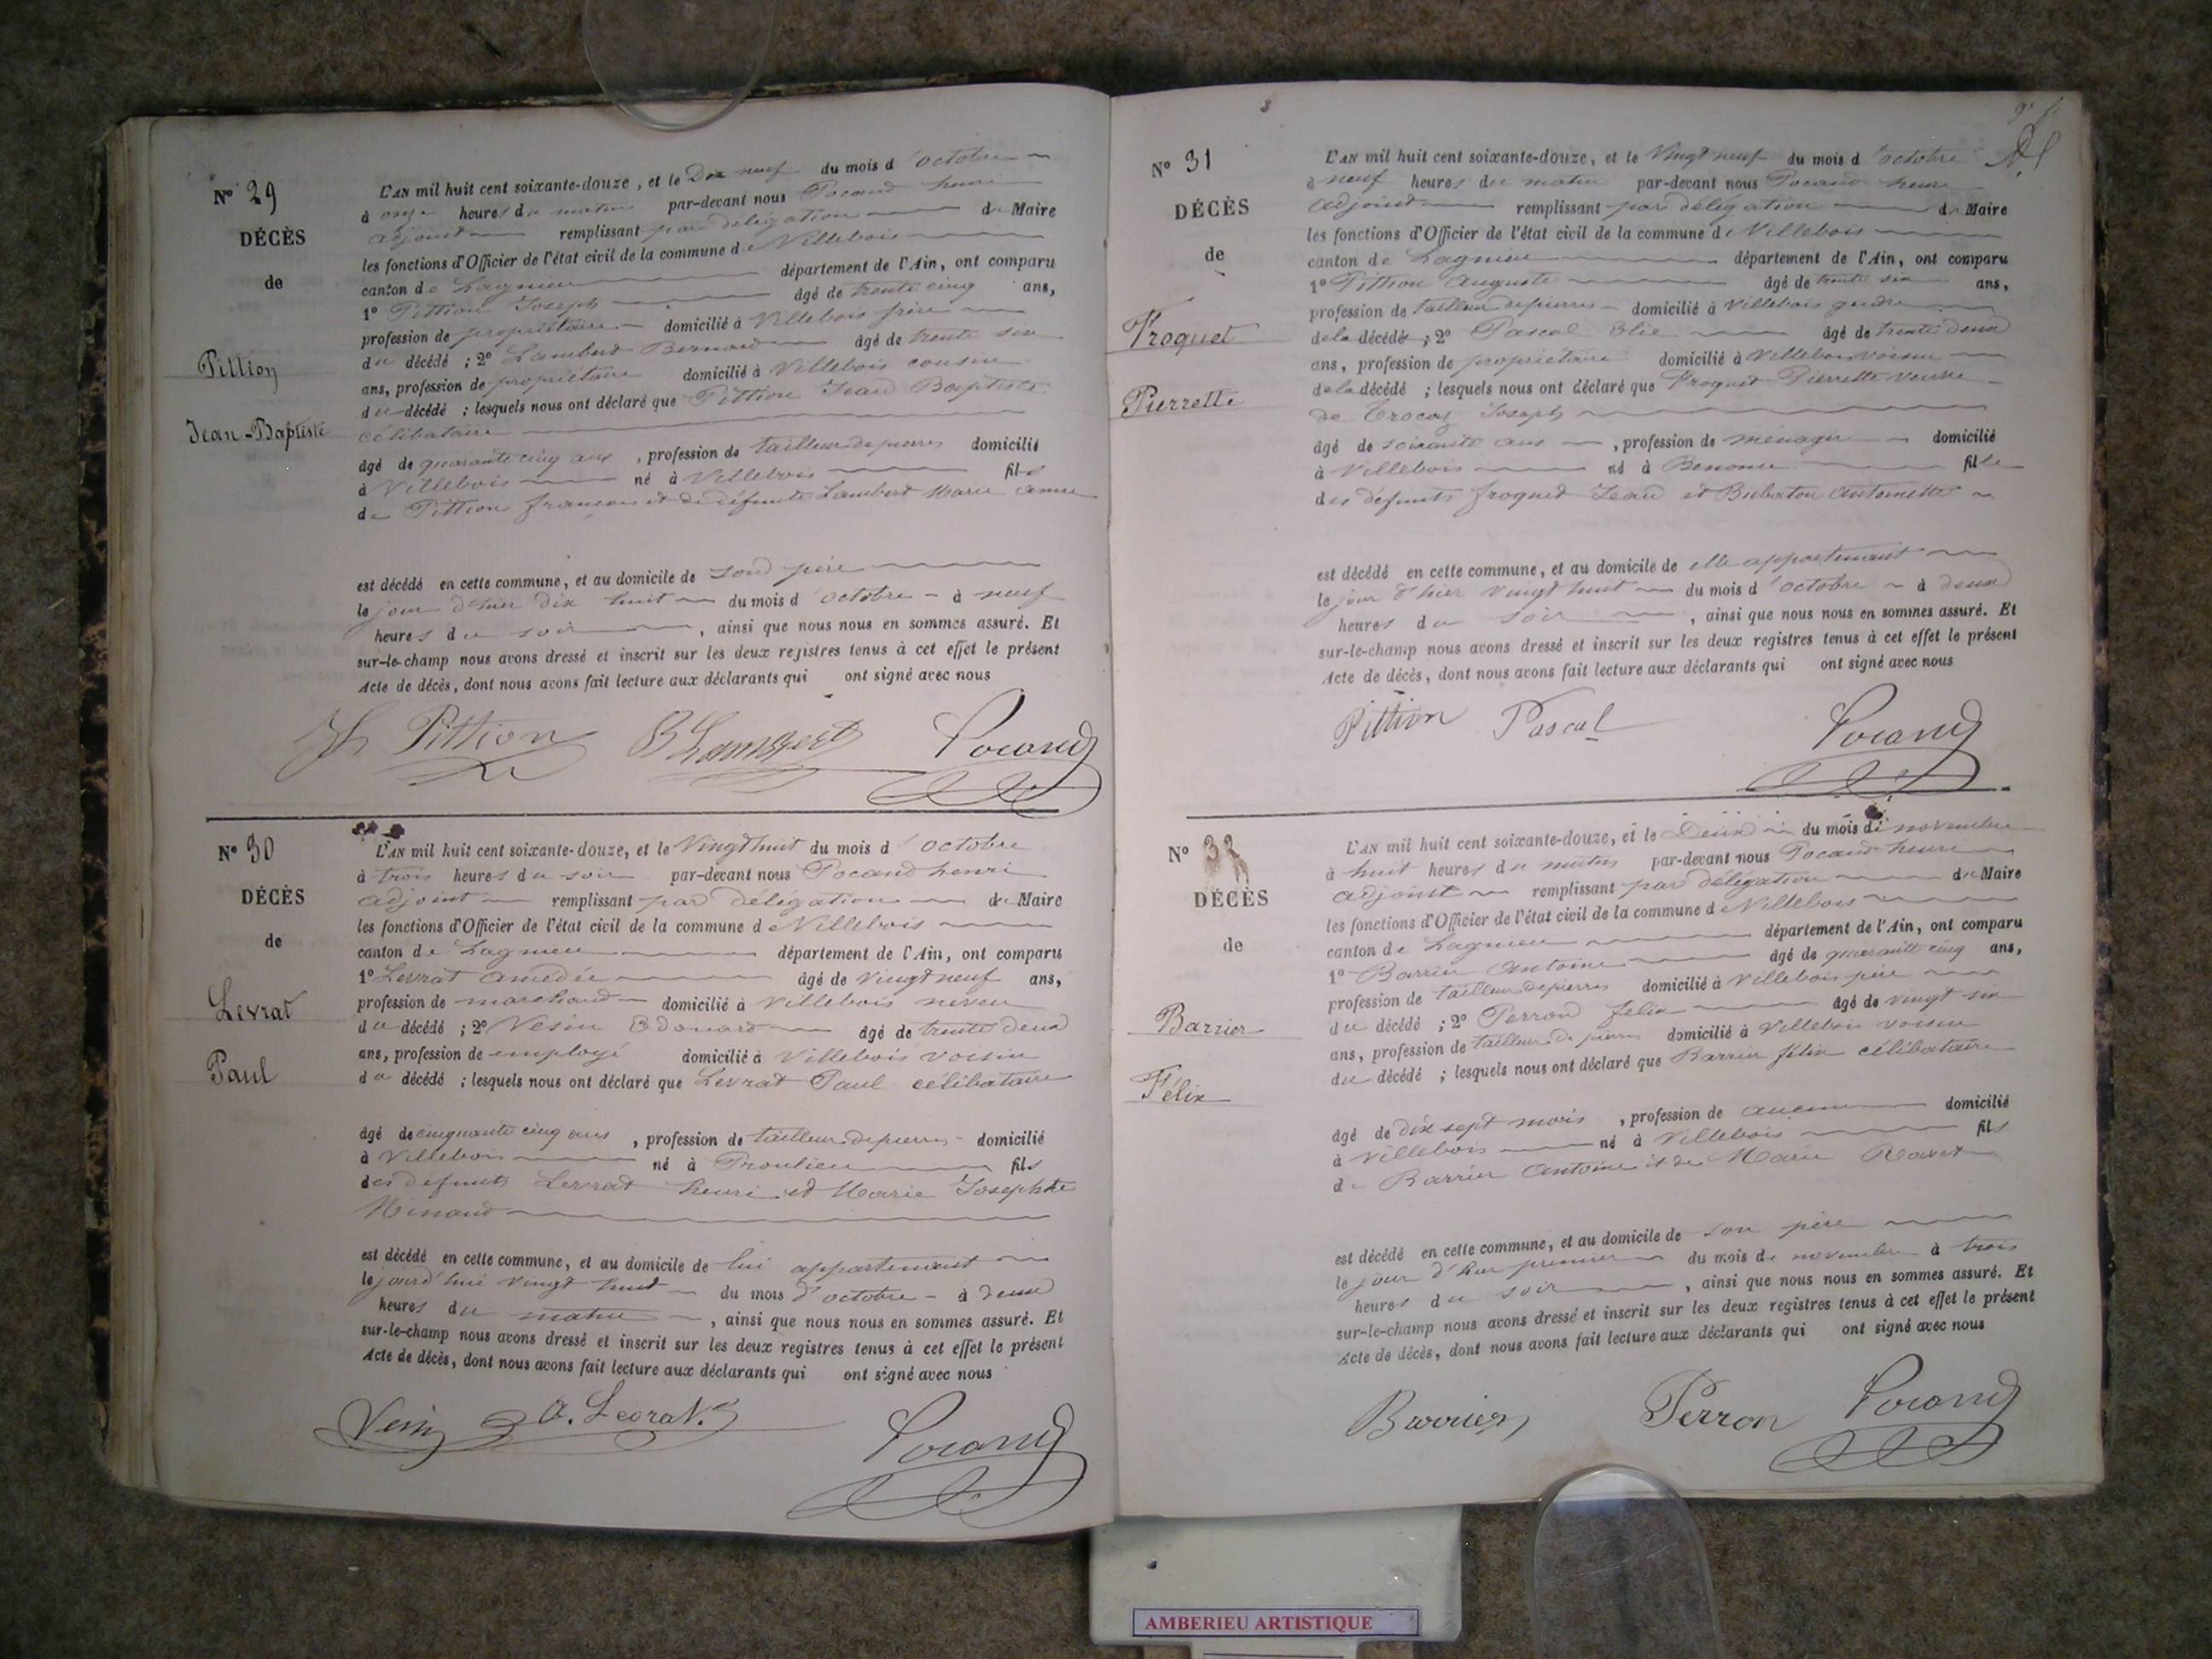 N° 29
DÉCÈS
de
Pittion
Jean-Baptiste
L'AN mil huit cent soixante-douze, et le Dix neuf du mois d'octobre
à onze heures du matin par-devant nous Pocand henri
adjoint remplissant par délégation du Maire
les fonctions d'Officier de l'état civil de la commune de Villebois
canton de Lagnieu département de l'Ain, ont comparu
1° Pittion Joseph âgé de trente cinq ans,
profession de propriétaire domicilié à Villebois frère
du décédé ; 2° Lambert Bernard âgé de trente six
ans, profession de propriétaire domicilié à Villebois cousin
du décédé ; lesquels nous ont déclaré que Pittion Jean Baptiste
célibataire
âgé de quarante cinq ans, profession de tailleur de pierres domicilié
à Villebois né à Villebois fils
de Pittion françois et de défunte Lambert Marie anne
est décédé en cette commune, et au domicile de sond père
le jour d'hier dix huit du mois d'octobre à neuf
heures du soir, ainsi que nous nous en sommes assuré. Et
sur-le-champ nous avons dressé et inscrit sur les deux registres tenus à cet effet le présent
Acte de décès, dont nous avons fait lecture aux déclarants qui ont signé avec nous
Jh Pittion B Lambert Pocand
N° 30
DÉCÈS
de
Levrat
Paul
L'AN mil huit cent soixante-douze, et le Vingt huit du mois d'octobre
à trois heures du soir par-devant nous Pocand henri
adjoint remplissant par délégation du Maire
les fonctions d'Officier de l'état civil de la commune de Villebois
canton de Lagnieu département de l'Ain, ont comparu
1° Levrat amédée âgé de vingt neuf ans,
profession de marchand domicilié à Villebois neveu
du décédé ; 2° Vesin Edouard âgé de trente deux
ans, profession de employé domicilié à Villebois voisin
du décédé ; lesquels nous ont déclaré que Levrat Paul célibataire
âgé de cinquante cinq ans, profession de tailleur de pierres domicilié
à Villebois né à Proulieu fils
des défunts Levrat henri et Marie Josephte
est décédé en cette commune, et au domicile de lui appartenant
le jourd'hui vingt huit du mois d'octobre à deux
heures du matin, ainsi que nous nous en sommes assuré. Et
sur-le-champ nous avons dressé et inscrit sur les deux registres tenus à cet effet le présent
Acte de décès, dont nous avons fait lecture aux déclarants qui ont signé avec nous
Vesin A. Levrat Pocand
N° 31
DÉCÈS
de
Froquet
Pierrette
L'AN mil huit cent soixante-douze, et le Vingt neuf du mois d'octobre
à neuf heures du matin par-devant nous Pocand henri
adjoint remplissant par délégation du Maire
les fonctions d'Officier de l'état civil de la commune de Villebois
canton de Lagnieu département de l'Ain, ont comparu
1° Pittion Auguste âgé de trente six ans,
profession de tailleur de pierres domicilié à Villebois gendre
de la décédée ; 2° Pascal Elie âgé de trente deux
ans, profession de propriétaire domicilié à Villebois voisin
de la décédé ; lesquels nous ont déclaré que Froquet Pierrette veuve
de Trocaz Joseph
âgé de soixante ans, profession de ménagère domicilié
à Villebois né à fille
des défunts froquet Jean et Antoinette
est décédé en cette commune, et au domicile de elle appartenant
le jour d'hier vingt huit du mois d'octobre à deux
heures du soir, ainsi que nous nous en sommes assuré. Et
sur-le-champ nous avons dressé et inscrit sur les deux registres tenus à cet effet le présent
Acte de décès, dont nous avons fait lecture aux déclarants qui ont signé avec nous
Pittion Pascal Pocand
N° 32
DÉCÈS
de
Barrier
Félix
L'AN mil huit cent soixante-douze, et le Deux du mois de novembre
à huit heures du matin par-devant nous Pocand henri
adjoint remplissant par délégation du Maire
les fonctions d'Officier de l'état civil de la commune de Villebois
canton de Lagnieu département de l'Ain, ont comparu
1° Barrier Antoine âgé de quarante cinq ans,
profession de tailleur de pierres domicilié à Villebois père
du décédé ; 2° Perron felix âgé de vingt six
ans, profession de tailleur de pierres domicilié à Villebois voisin
du décédé ; lesquels nous ont déclaré que Barrier félix célibataire
âgé de dix sept mois, profession de aucune domicilié
à Villebois né à Villebois fils
de Barrier Antoine et de Marie
est décédé en cette commune, et au domicile de son père
le jour d'hier premier du mois de novembre à trois
heures du soir, ainsi que nous nous en sommes assuré. Et
sur-le-champ nous avons dressé et inscrit sur les deux registres tenus à cet effet le présent
Acte de décès, dont nous avons fait lecture aux déclarants qui ont signé avec nous
Barrier Perron Pocand
AMBERIEU ARTISTIQUE